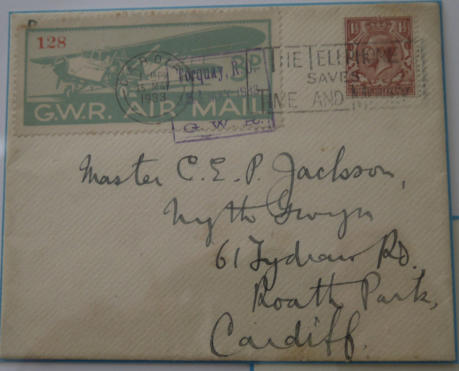 128
G.W.R. AIR MAIL
Torquay,
G. W. R.
1933
THE TELEPHONE
SAVES
TIME AND
Master C. E. P. Jackson,
Nyth Gwyn
61 Tydraw RD.
Roath Park,
Cardiff.